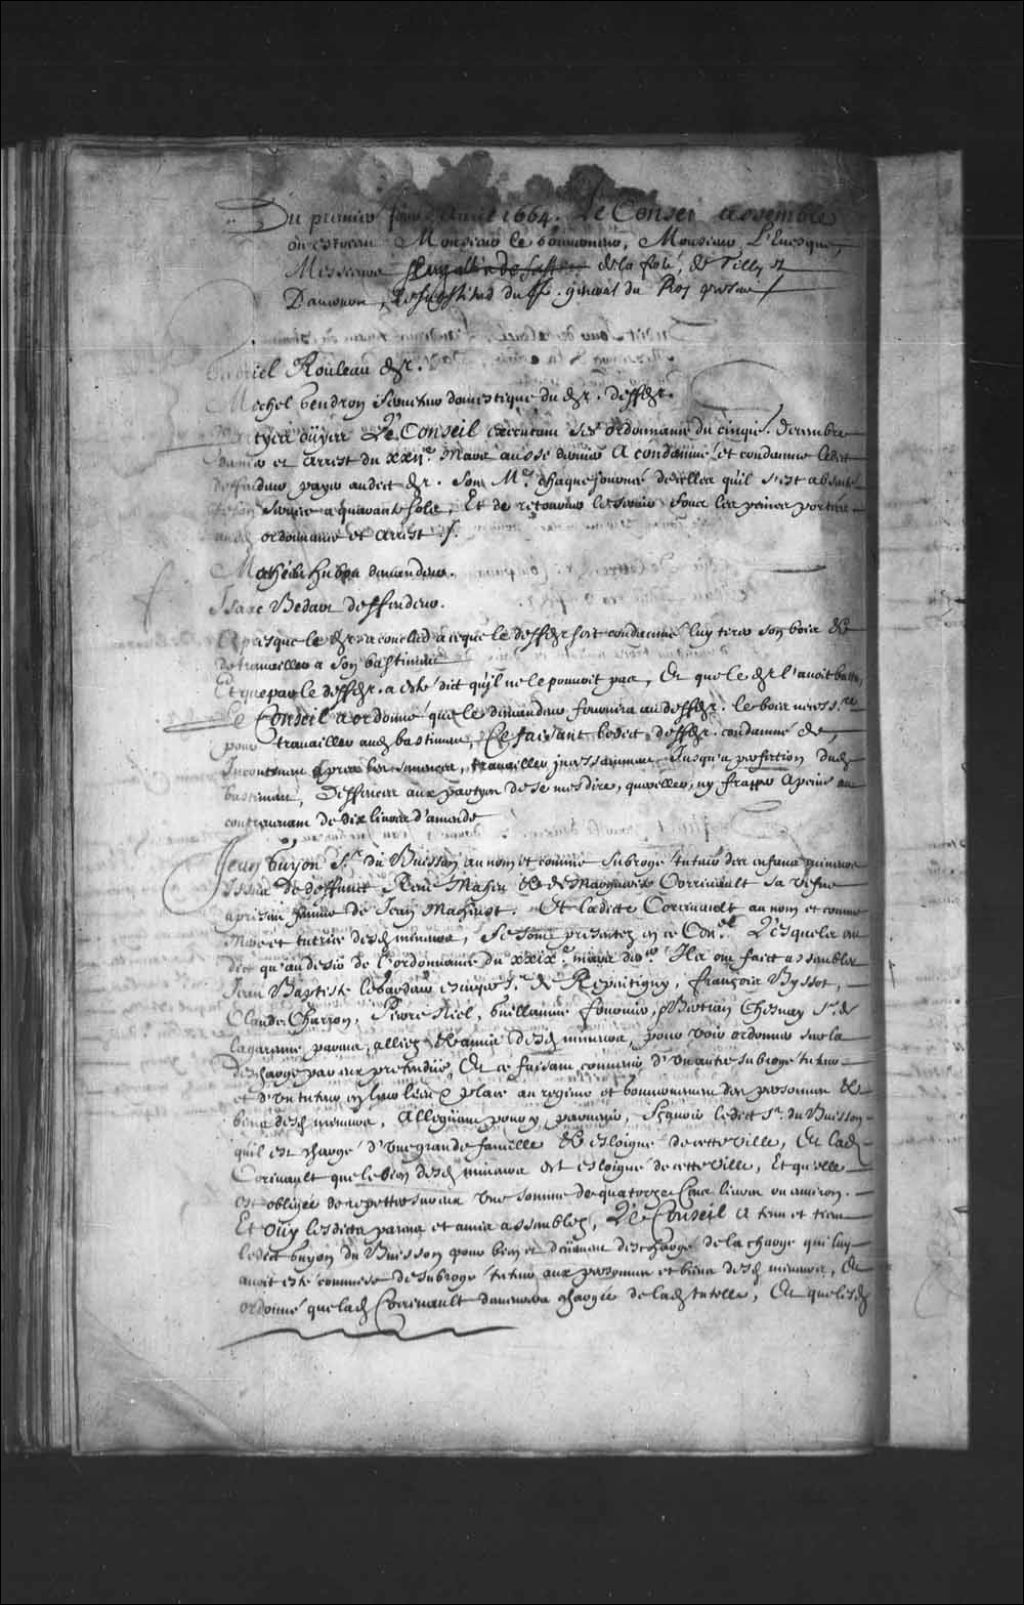 Du premier jour d'Auril 1664. Le Conseil assemblé
où estoient Monsieur le Gouuerneur, Monsieur L'Euesque,
Messieurs de la ferté, de Tilly et
Damours, Le substitud du gñeral du Roy present /
Gabriel Rouleau dr.
Michel Gendron seruiteur domestique du dr. deffdr.
Partyes ouyes Le Conseil executant ses ordonnances du cinqe. decembre
dernier et arrest du XXIIe. Mars aussy dernier A condamné et condamne ledict
deffendeur payer audict dr. son Me. chaque journée de celles qu'il s'est absenté
de son seruice a quarante sols, Et de retourner le seruir soubz les peines portées
ausd. ordonnance et arrest /.
Mathieu hubou demandeur.
Isaac Bedard deffendeur.
Apres que le dr. a conclud a ce que le deffdr soit condamné luy tirer son bois &
de trauailler a son bastiment
Et que par le deffdr. a esté dict qu'il ne le pouuoit pas, Et que le dr l'auoit battu,
Le Conseil a ordonné que le demandeur fournira au deffdr. le bois necessre
pour trauailler aud. bastiment, Ce faisant ledict deffdr. condamné de,
Incontinant apres les semences, trauailler incessamment Jusqu'a perfection dud.
bastiment, Deffences aux partyes de se mesdire, quereller, ny frapper a peine au
contreuenant de dix liures d'amende
Jean Guyon Sr. du Buisson au nom et comme subrogé tuteur des enfans mineurs
Issus de deffunct René Maheu & de Marguerite Corriuault sa vefue
apresent femme de Jean Maheust. Et ladicte Corriuault au nom et comme
Mere et tutrice desd. mineurs, Se sont presentez en ce Conel. Lesquels ont
dict qu'au desir de l'ordonnance du XXIXe. mars der. Ils ont faict assembler
Jean Baptiste legardeur escuyer Sr. de Repentigny, françois Byssot,
Claude Charron, Pierre Niel, Guillaume fournier, Bertran Chesnay Sr. de
lagarenne parens, alliez & amis desd. mineurs, pour voir ordonner sur la
descharge par eux pretendüe, Et ce faisant conuenir d'un autre subrogé tuteur
et d'un tuteur en leur lieu & place au regime et gouuernement des personnes &
biens desd. mineurs, Alleguant pour y paruenir, Sçauoir ledict Sr. du Buisson
qu'il est chargé d'vne grande famille & esloigné de cette ville, Et lad.
Corriuault que le bien desd. mineurs est esloigné de cette ville, Et qu'elle
est obligée de repetter sur eux vne somme de quatorze Cens liures ou enuiron.
Et Ouy lesdicts parens et amis assemblez, Le Conseil a tenu et tient
ledict Guyon du Buisson pour bien et deüement deschargé de la charge qui luy
auoit esté commise de subrogé tuteur aux personnes et biens desd. mineurs, Et
ordonné que lad. Corriuault demeurera chargée de lad. tutelle, Et que lesd.